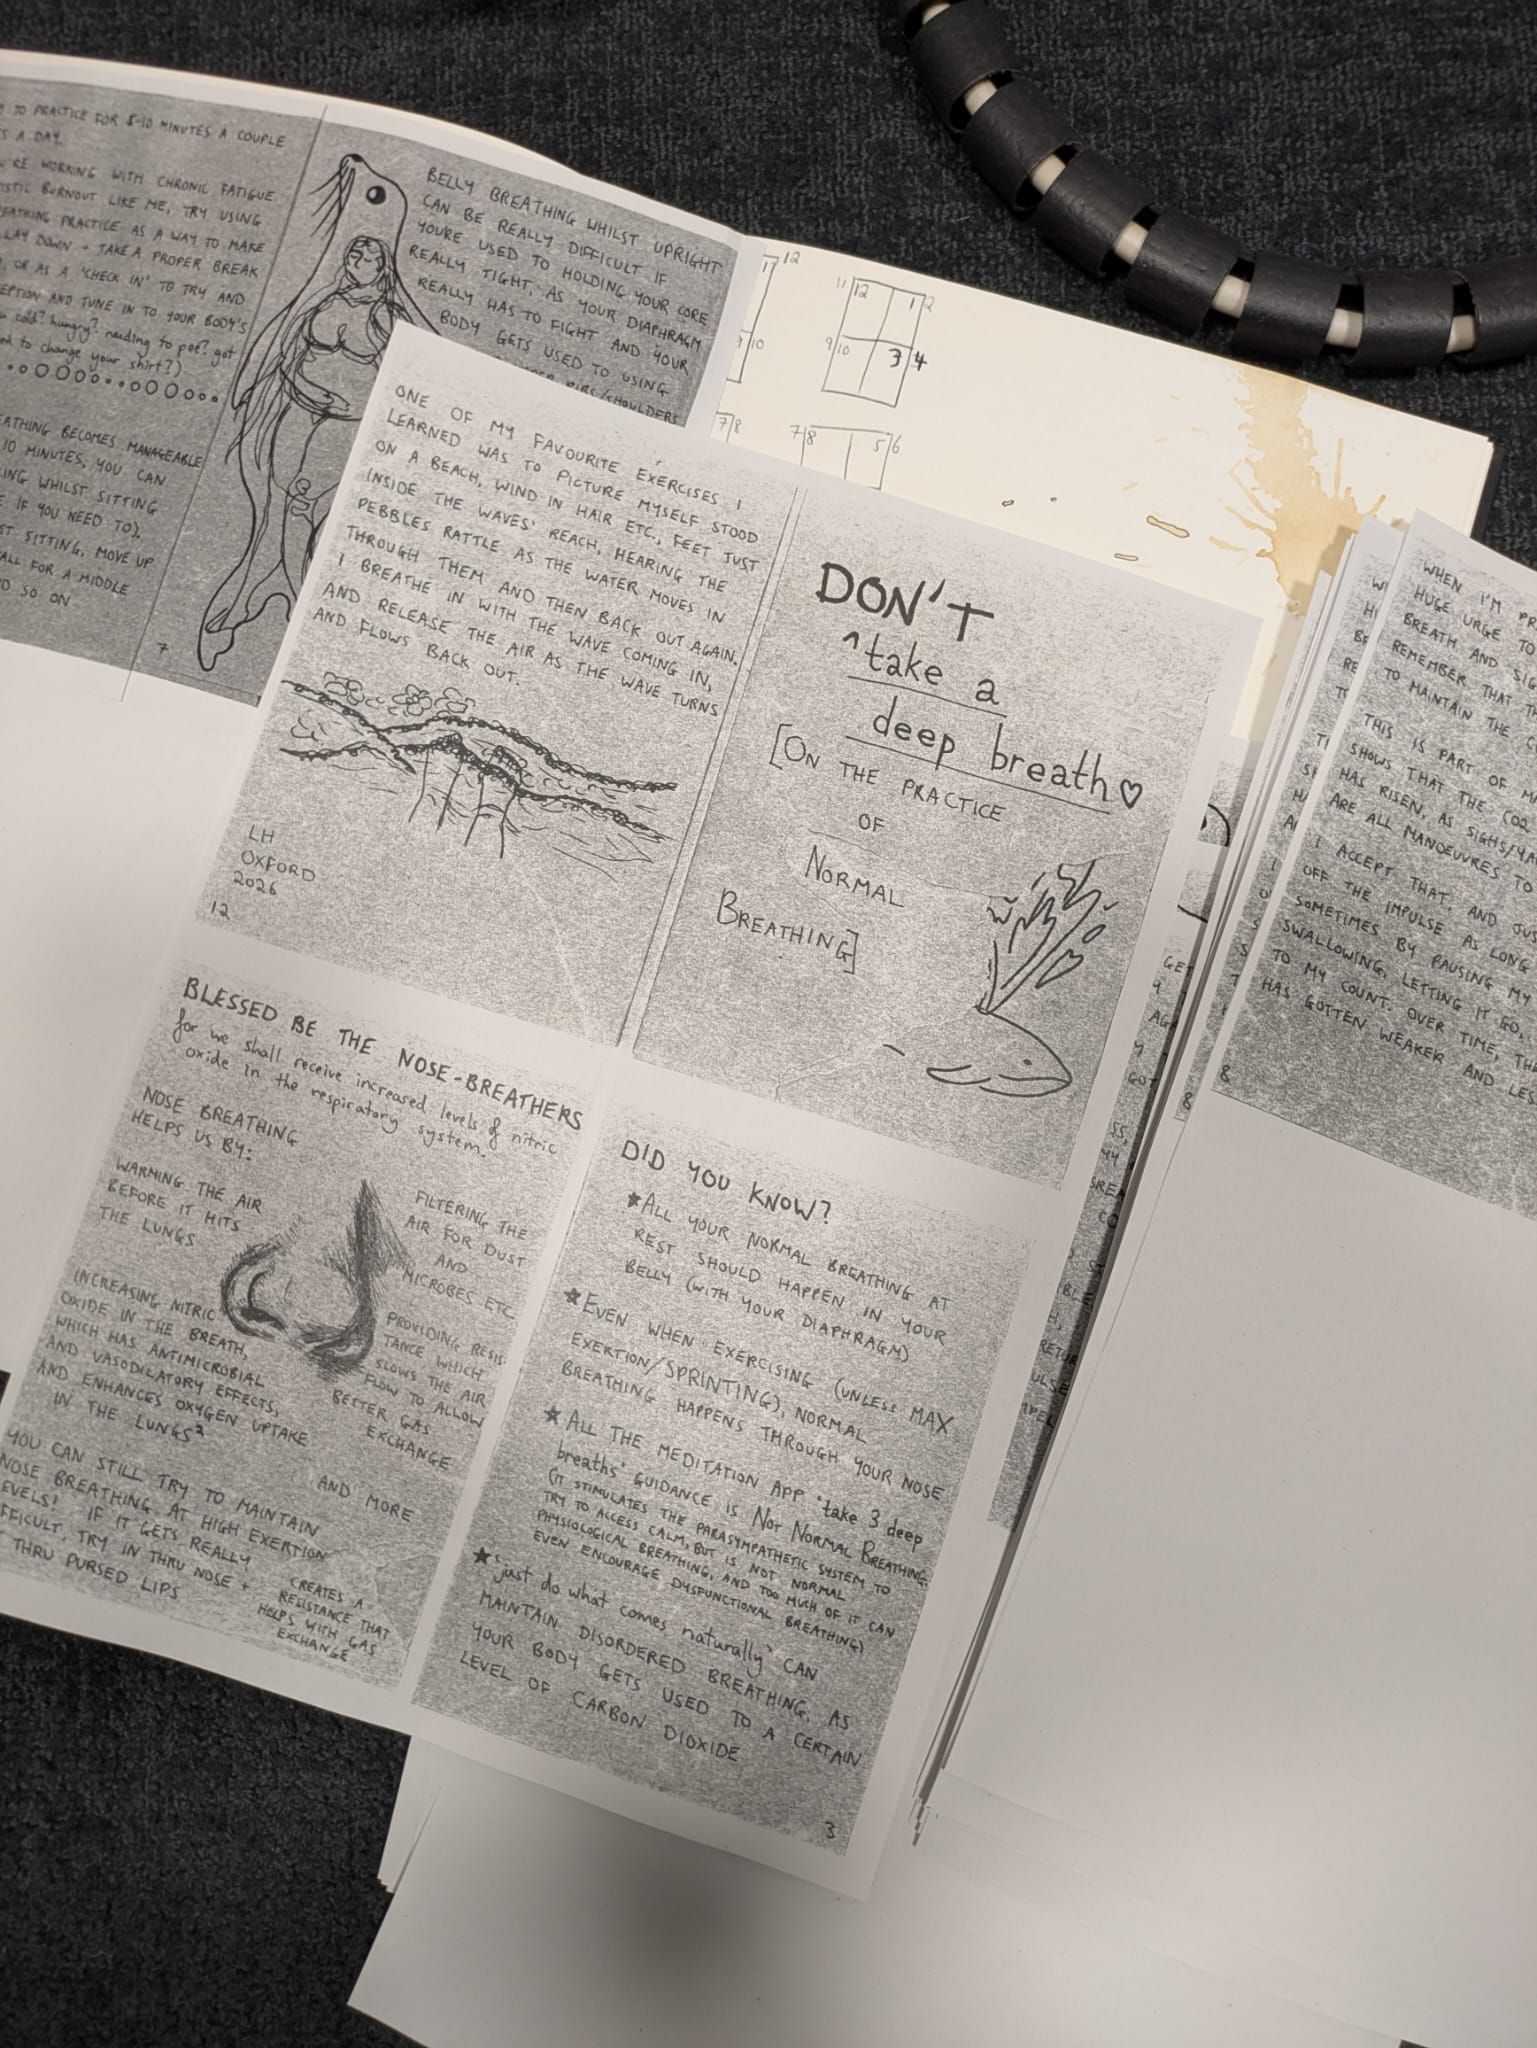 TO PRACTICE FOR 5-10 MINUTES A COUPLE
A DAY.
WORKING WITH CHRONIC FATIGUE
BURNOUT LIKE ME, TRY USING
PRACTICE AS A WAY TO MAKE
LAY DOWN + TAKE A PROPER BREAK
OR AS A 'CHECK IN' TO TRY AND
AND TUNE IN TO YOUR BODY'S
cold? hungry? needing to pee? got
to change your shirt?)
BECOMES MANAGEABLE
10 MINUTES, YOU CAN
WHILST SITTING
IF YOU NEED TO).
SITTING, MOVE UP
FOR A MIDDLE
SO ON
7
BELLY BREATHING WHILST UPRIGHT
CAN BE REALLY DIFFICULT IF
YOURE USED TO HOLDING YOUR CORE
REALLY TIGHT, AS YOUR DIAPHRAGM
REALLY HAS TO FIGHT AND YOUR
BODY GETS USED TO USING
RIBS/SHOULDERS
12
10
7 8
11 12 1 2
9 10 3 4
7 8 5 6
ONE OF MY FAVOURITE EXERCISES I
LEARNED WAS TO PICTURE MYSELF STOOD
ON A BEACH, WIND IN HAIR ETC., FEET JUST
INSIDE THE WAVES' REACH, HEARING THE
PEBBLES RATTLE AS THE WATER MOVES IN
THROUGH THEM AND THEN BACK OUT AGAIN.
I BREATHE IN WITH THE WAVE COMING IN,
AND RELEASE THE AIR AS THE WAVE TURNS
AND FLOWS BACK OUT.
LH
OXFORD
2026
12
DON'T
^take a
deep breath ♡
[ON THE PRACTICE
OF
NORMAL
BREATHING]
BLESSED BE THE NOSE-BREATHERS
for we shall receive increased levels of nitric
oxide in the respiratory system.
NOSE BREATHING
HELPS US BY:
WARMING THE AIR
BEFORE IT HITS
THE LUNGS
FILTERING THE
AIR FOR DUST
AND
MICROBES ETC
INCREASING NITRIC
OXIDE IN THE BREATH,
WHICH HAS ANTIMICROBIAL
AND VASODILATORY EFFECTS,
AND ENHANCES OXYGEN UPTAKE
IN THE LUNGS²
PROVIDING RESIS
TANCE WHICH
SLOWS THE AIR
FLOW TO ALLOW
BETTER GAS
EXCHANGE
AND MORE
YOU CAN STILL TRY TO MAINTAIN
NOSE BREATHING AT HIGH EXERTION
LEVELS! IF IT GETS REALLY
DIFFICULT, TRY IN THRU NOSE +
THRU PURSED LIPS
CREATES A
RESISTANCE THAT
HELPS WITH GAS
EXCHANGE
DID YOU KNOW?
★ ALL YOUR NORMAL BREATHING AT
REST SHOULD HAPPEN IN YOUR
BELLY (WITH YOUR DIAPHRAGM)
★ EVEN WHEN EXERCISING (UNLESS MAX
EXERTION/SPRINTING), NORMAL
BREATHING HAPPENS THROUGH YOUR NOSE
★ ALL THE MEDITATION APP 'take 3 deep
breaths' GUIDANCE IS NOT NORMAL BREATHING.
(IT STIMULATES THE PARASYMPATHETIC SYSTEM TO
TRY TO ACCESS CALM, BUT IS NOT NORMAL
PHYSIOLOGICAL BREATHING, AND TOO MUCH OF IT CAN
EVEN ENCOURAGE DYSFUNCTIONAL BREATHING)
★ 'just do what comes naturally' CAN
MAINTAIN DISORDERED BREATHING, AS
YOUR BODY GETS USED TO A CERTAIN
LEVEL OF CARBON DIOXIDE
3
GET
8
WHEN I'M
HUGE URGE TO
BREATH AND
REMEMBER THAT
TO MAINTAIN THE
THIS IS PART OF
SHOWS THAT THE CO2
HAS RISEN, AS SIGHS/
ARE ALL MANOEUVRES TO
I ACCEPT THAT, AND
OFF THE IMPULSE AS LONG
SOMETIMES BY PAUSING MY
SWALLOWING, LETTING IT GO,
TO MY COUNT. OVER TIME,
HAS GOTTEN WEAKER AND
8